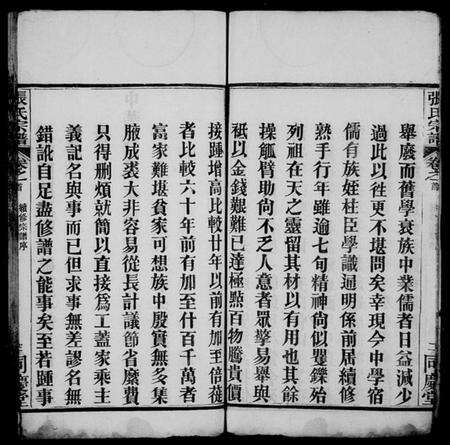 張氏宗譜
卷之首
舉廢而舊學衰族中業儒者日益減少
過此以徃更不堪問矣幸現今中學宿
儒有族姪桂臣學識通明係前屆續修
熟手行年雖逾七旬精神尚似矍鑠殆
列祖在天之靈留其材以有用也其餘
操觚臂助尚不乏人意者眾擎易舉與
秪以金錢艱難已達極點百物騰貴價
接踵增高比較廿年以前有加至倍蓰
者比較六十年前有加至什百千萬者
富家難堪貧家可想族中殷實無多集
腋成裘大非容易從長計議節省縻費
只得刪煩就簡以直接為工蓋家乘主
義記名與事而已但求事無差謬名無
錯訛自足盡修譜之能事矣至若踵事
同慶堂
張氏宗譜
卷之首
續修宗譜序
同慶堂